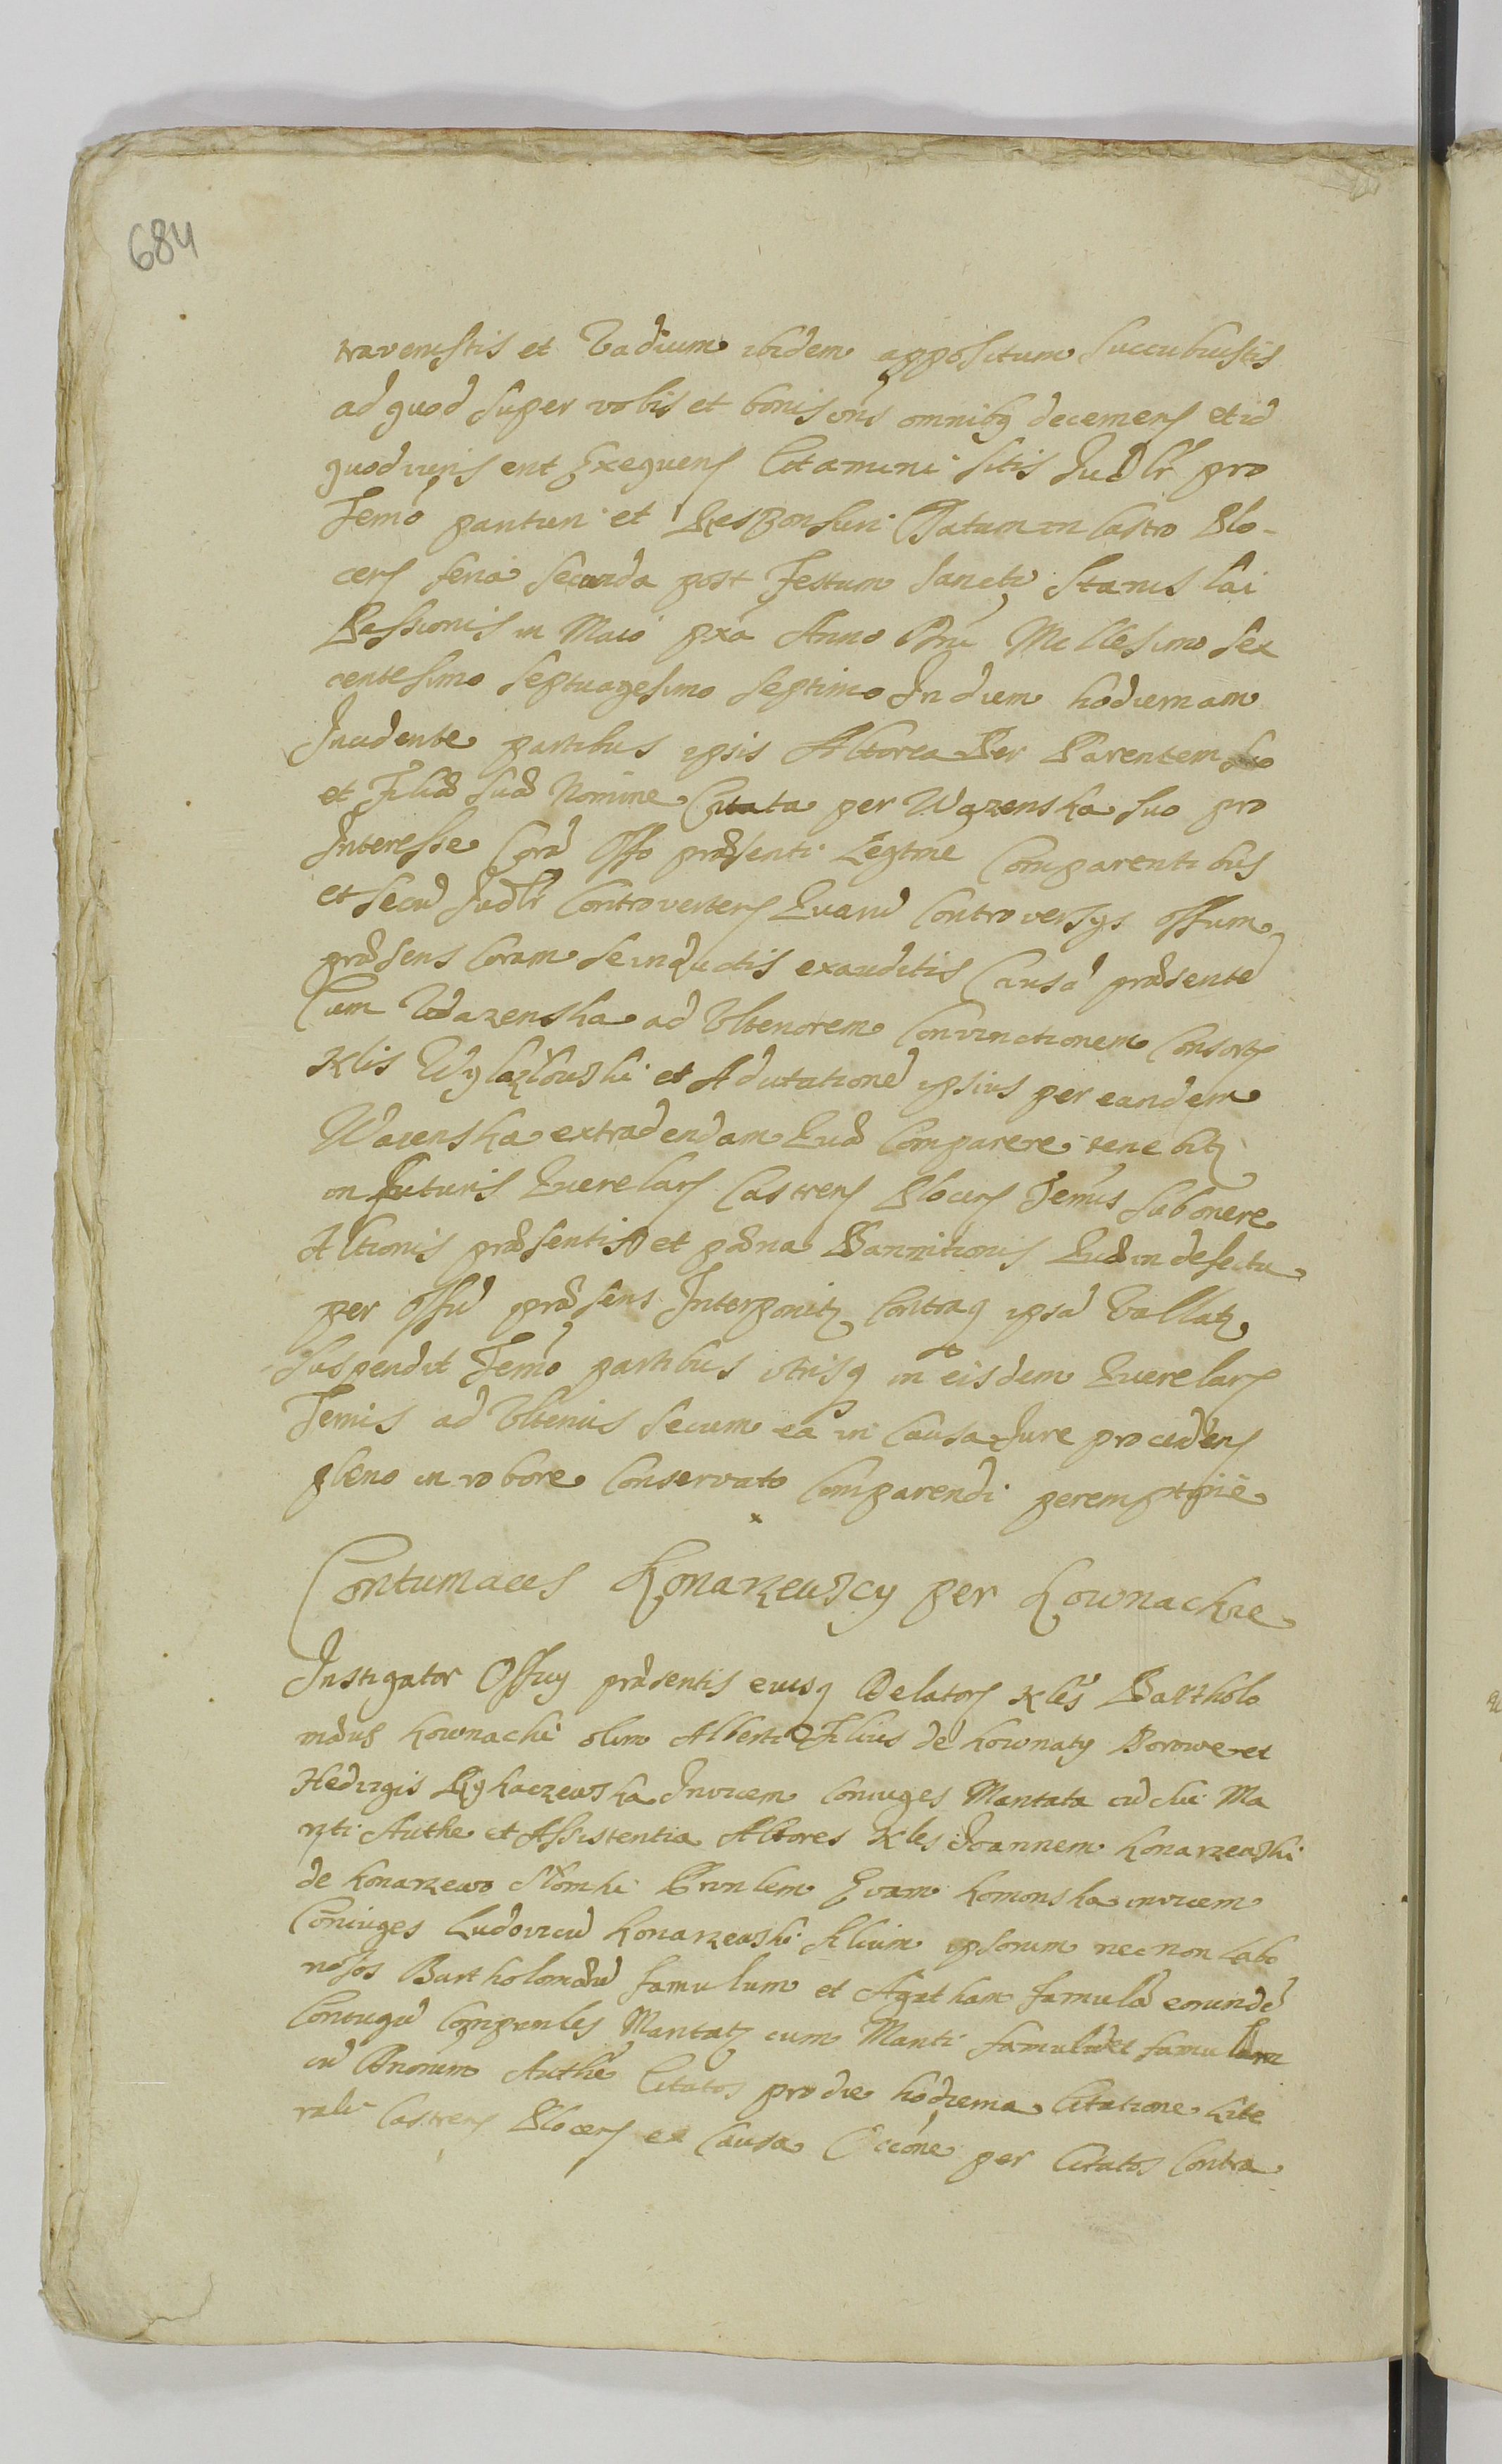 684
travenistis et Vadium ibidem appositum succubuistis
ad quod super vobis et bonis vris omnibq decernens et id
quod iuris erit Exequens Citamini sitis Judlr pro
Termo parituri et Responsuri Datum in Castro Plo-
cens feria secunda post Festum Sancti Stanislai
Passionis in Maio pxa Anno Dni Millesimo Sex
centesimo septuagesimo septimo In diem hodiernam
Incidente partibus ipsis Actorea Per Parentem suo
et Filiæ suæ Nomine Citata per Wązenska suo pro
Interesse Corã Offo præsenti Legtme Comparentibus
et secũ Judlr Controvertens Quarũ Controversys offum
præsens Coram se inductis exauditis Causã præsentẽ
Cum Wazenska ad Ulteriorem Convinctionem Consortis
Nlis Wylazłowski et Adcitationẽ ipsius per eandem
Wazenska extradendam Quæ Comparere tenebitr
in futuris Querelars Castrens Plocens Termis sub onere
Actionis præsentis et pæna Bannitionis Quæ in defectu
per Offũ præsens Interponitr Contraq ipsã Vallatr
Suspendit Termo partibus utrisq in eisdem Querelars
Termis ad Ulterius secum eã in Causa Jure procedens
pleno in robore Conservato Comparendi peremptorie
Contumaces Konarzewscy per Kownackie
Instigator Offcy præsentis eiusq Delatores Nles Bartholo
mæus Kownacki olim Alberti Filius de Kownaty Borowe et
Hedvigis Rykaczewska Invicem Coniuges Maritata cũ sui Ma
riti Authe et Assistentia Actores Nles Joannem Konarzewski
de Konarzewo Słomki Prinlem Evam Komorska invicem
Coniuges Ludovicũ Konarzewski filium ipsorum necnon labo
riosos Bartholomæũ famulum et Agatham famulã eorundẽ
Coniugũ Comprinles Maritatr cum Mariti famulã et famulum
cũ Dnorum Authe Citatos pro die hodierna Citatione Lite
rali Castrens Plocens ex Causa Occione per Citatos Contra